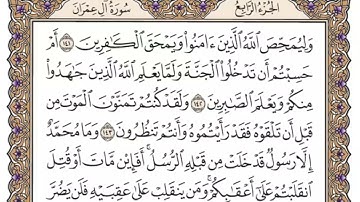 الجزء الرابع
سورة آل عمران
وَلِيُمَحِّصَ ٱللَّهُ ٱلَّذِينَ ءَامَنُوا۟ وَيَمْحَقَ ٱلْكَٰفِرِينَ ١٤١ أَمْ
حَسِبْتُمْ أَن تَدْخُلُوا۟ ٱلْجَنَّةَ وَلَمَّا يَعْلَمِ ٱللَّهُ ٱلَّذِينَ جَٰهَدُوا۟
مِنكُمْ وَيَعْلَمَ ٱلصَّٰبِرِينَ ١٤٢ وَلَقَدْ كُنتُمْ تَمَنَّوْنَ ٱلْمَوْتَ مِن
قَبْلِ أَن تَلْقَوْهُ فَقَدْ رَأَيْتُمُوهُ وَأَنتُمْ تَنظُرُونَ ١٤٣ وَمَا مُحَمَّدٌ
إِلَّا رَسُولٌ قَدْ خَلَتْ مِن قَبْلِهِ ٱلرُّسُلُ ۚ أَفَإِي۟ن مَّاتَ أَوْ قُتِلَ
ٱنقَلَبْتُمْ عَلَىٰٓ أَعْقَٰبِكُمْ ۚ وَمَن يَنقَلِبْ عَلَىٰ عَقِبَيْهِ فَلَن يَضُرَّ